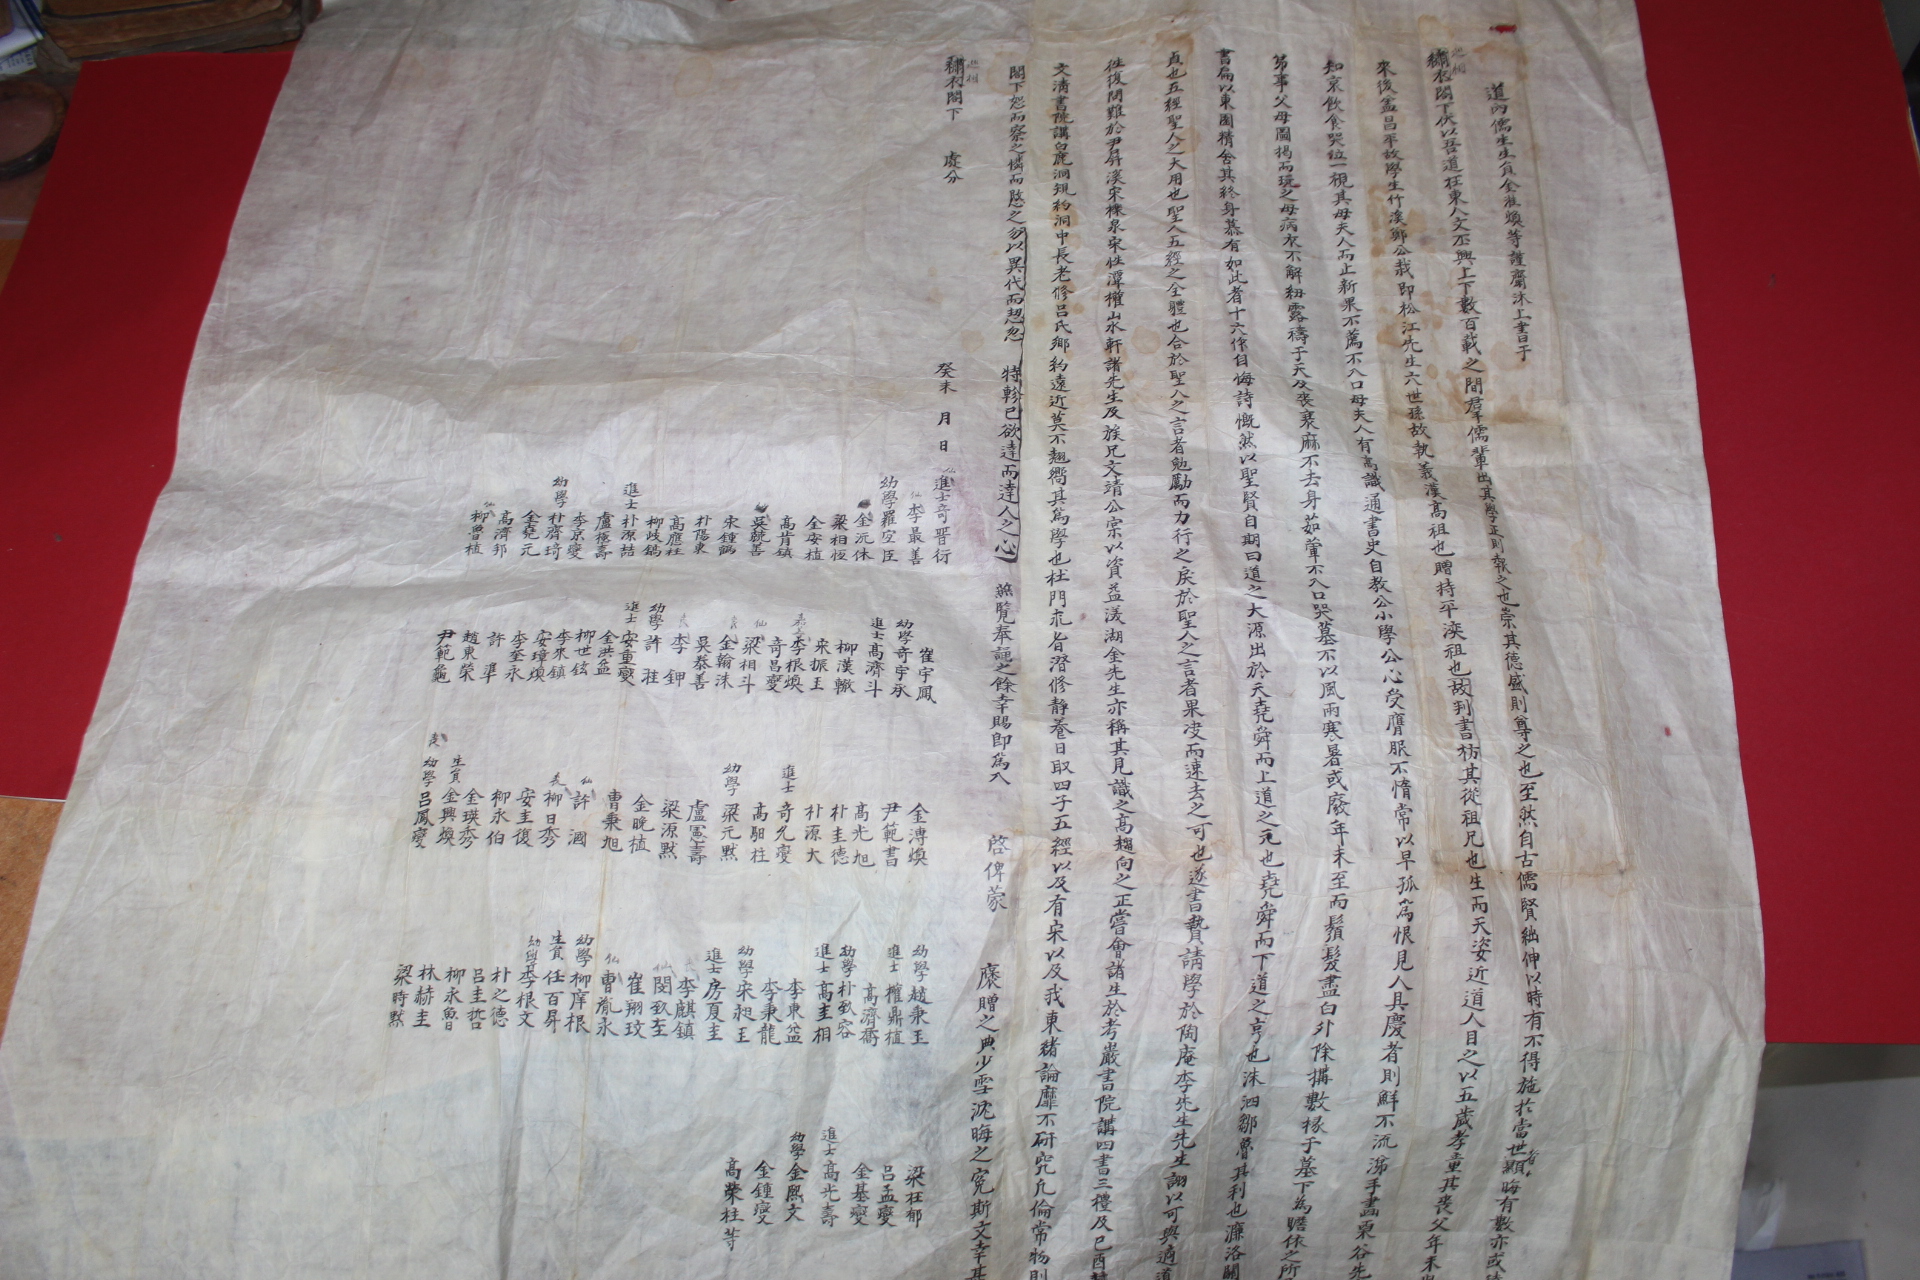 道內儒生生員金濬煥等謹齋沐上書曰于
繡衣閤下伏以吾道在東人文丕興上下數百載之間羣儒輩出其學正則報之也崇其德盛則尊之也至然自古儒賢絀伸以時有不得施於當世者顯晦有數亦或
來後孟昌平故學生竹溪鄭公栽即松江先生六世孫故執義漢高祖也贈持平浹祖也故判書枋其從祖兄也生而天姿近道人目之以五歲孝童其喪父年未
知哀飲食哭泣一視其母夫人而止新果不薦不入口母夫人有高識通書史自教公小學公心受膺服不惰常以早孤爲恨見人具慶者則鮮不流涕手畫栗谷先
第事父母圖揭而玩之母病衣不解紐露禱于天及喪衰麻不去身茹葷不入口哭墓不以風雨寒暑或廢年未至而鬚髮盡白外除搆數椽于墓下爲瞻依之所
書扁以東園精舍其終身慕有如此者十六作自悔詩慨然以聖賢自期曰道之大源出於天堯舜而上道之元也堯舜而下道之亨也洙泗鄒魯其利也濂洛關
貞也五經聖人之大用也聖人五經之全體也合於聖人之言者勉勵而力行之戾於聖人之言者果决而速去之可也遂書贄請學於陶庵李先生先生詡以可與適道
往復問難於尹屛溪宋櫟泉宋性潭權山水軒諸先生及族兄文靖公宗以資益渼湖金先生亦稱其見識之高趨向之正嘗會諸生於考巖書院講四書三禮及己酉
文淸書院講白鹿洞規約洞中長老修呂氏鄉約遠近莫不翹嚮其爲學也杜門求旨潛修靜養日取四子五經以及有宋以及我東緖論靡不硏究凡倫常物則
閤下恕而察之憐而愍之勿以異代而愬忽 特軫己欲達而達人之心 無覽奉誦之餘幸賜卽爲入 啓俾蒙 褒贈之典少雪沈晦之寃斯文幸甚
繡衣閤下 處分
癸未 月 日
進士奇晋衍
李最善
幼學羅空臣
金沅休
梁相恆
金安植
高肯鎭
吳兢善
宋鍾
朴陽東
高應柱
柳岐鎬
進士朴源喆
盧穉壽
李京燮
幼學朴齊琦
金堯元
高濟邦
柳魯植
崔宇鳳
幼學奇宇永
進士高濟斗
柳漢轍
宋振玉
李根煥
奇昌燮
梁相斗
金翰洙
吳泰善
李鉀
幼學許 莊
進士安重燮
金洪益
柳世鉉
李來鎭
安璋煥
李奎永
許 準
趙東榮
尹範龜
金溥煥
尹範書
高光旭
朴圭德
朴源大
進士奇允燮
高馹柱
幼學梁元默
盧憲壽
梁源默
金晚植
曹秉旭
許 涸
柳日秀
安圭復
柳永伯
金瑛秀
生員金興煥
幼學呂鳳燮
幼學趙秉玉
進士權鼎植
高濟喬
幼學朴致容
進士高圭相
李東益
李秉龍
幼學宋昶玉
進士房夏圭
李麒鎭
閔致至
崔翔玟
曹胤永
幼學柳庠根
生員任百昇
幼學李根文
朴之德
呂圭哲
柳永魯
林赫圭
梁時默
梁在郁
呂孟燮
金基燮
進士高光壽
幼學金熙文
金鍾燮
高榮柱等